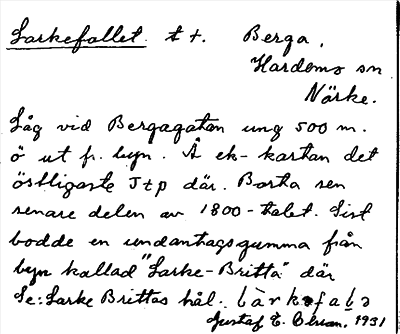 Larkefallet. t t. Berga,
Hardemo sn
Närke.
Låg vid Bergagatan ung 500 m.
ö ut fr. byn. Å ek-kartan det
östligaste Jtp där. Borta sen
senare delen av 1800-talet. Sist
bodde en undantagsgumma från
byn kallad "Larke-Britta" där
Se: Larke Brittas hål.
Gustaf E. 1931